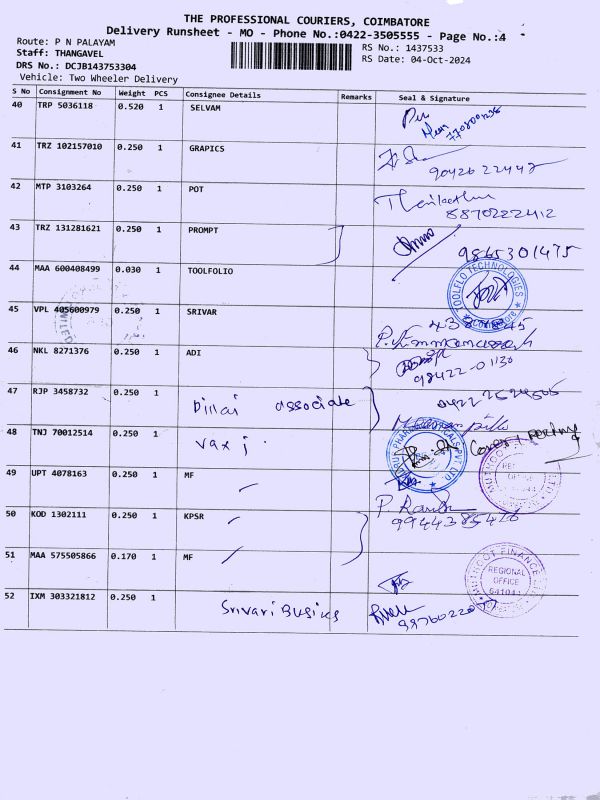 THE PROFESSIONAL COURIERS, COIMBATORE
Delivery Runsheet - MO - Phone No.:0422-3505555 - Page No.:4
Route: P N PALAYAM
RS No.: 1437533
Staff: THANGAVEL
RS Date: 04-Oct-2024
DRS No.: DCJB143753304
Vehicle: Two Wheeler Delivery
S No Consignment No Weight PCS Consignee Details Remarks Seal & Signature
40 TRP 5036118 0.520 1 SELVAM
41 TRZ 102157010 0.250 1 GRAPICS
9042622442
42 MTP 3103264 0.250 1 POT
8870222412
43 TRZ 131281621 0.250 1 PROMPT
9865301475
44 MAA 600408499 0.030 1 TOOLFOLIO
TOOLFLO TECHNOLOGIES
45 VPL 405600979 0.250 1 SRIVAR
46 NKL 8271376 0.250 1 ADI
98422-01130
47 RJP 3458732 0.250 1 Pillai associate
48 TNJ 70012514 0.250 1 vax j
49 UPT 4078163 0.250 1 MF
50 KOD 1302111 0.250 1 KPSR
51 MAA 575505866 0.170 1 MF
MUTHOOT FINANCE LTD
REGIONAL
OFFICE
52 IXM 303321812 0.250 1 Srivari Busiks